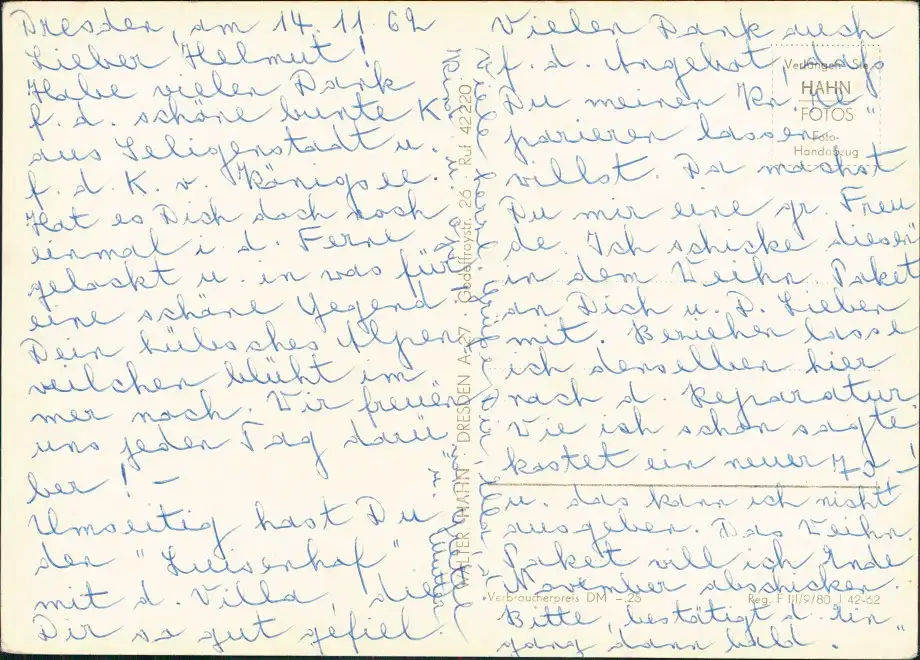 Dresden, am 14.11.62
Lieber Helmut!
Habe vielen Dank
f. d. schöne bunte K.
aus Seligenstadt u.
f. d. K. v. Königsee.
Hat es Dich doch noch
einmal i. d. Ferne
gelockt u. in was für
eine schöne Gegend!
Dein hübsches Alpen
veilchen blüht im
mer noch. Wir freuen
uns jeden Tag darü
ber! –
Umseitig hast Du
den "Luisenhof"
mit d. Villa, die
Dir so gut gefiel.
WALTER HAHN · DRESDEN A-27 · Godeffroystr. 26 · Ruf 42220
Vielen Dank auch
f. d. Angebot, daß
Du meinen
parieren lassen
willst. Da machst
Du mir eine gr. Freu
de. Ich schicke diesen
in dem Weihn. Paket
an Dich u. D. Lieben
mit. Beziehen lasse
ich denselben hier
nach d. Reparatur
Wie ich schon sagte
kostet ein neuer
u. das kann ich nicht
ausgeben. Das Weihn.
Paket will ich Ende
November abschicken.
Bitte, bestätigt d. Ein"
gang dann bald.
Verlangen Sie
HAHN
FOTOS
Foto-
Handabzug
Verbraucherpreis DM -.25
Reg. F III/9/80 J 42-62